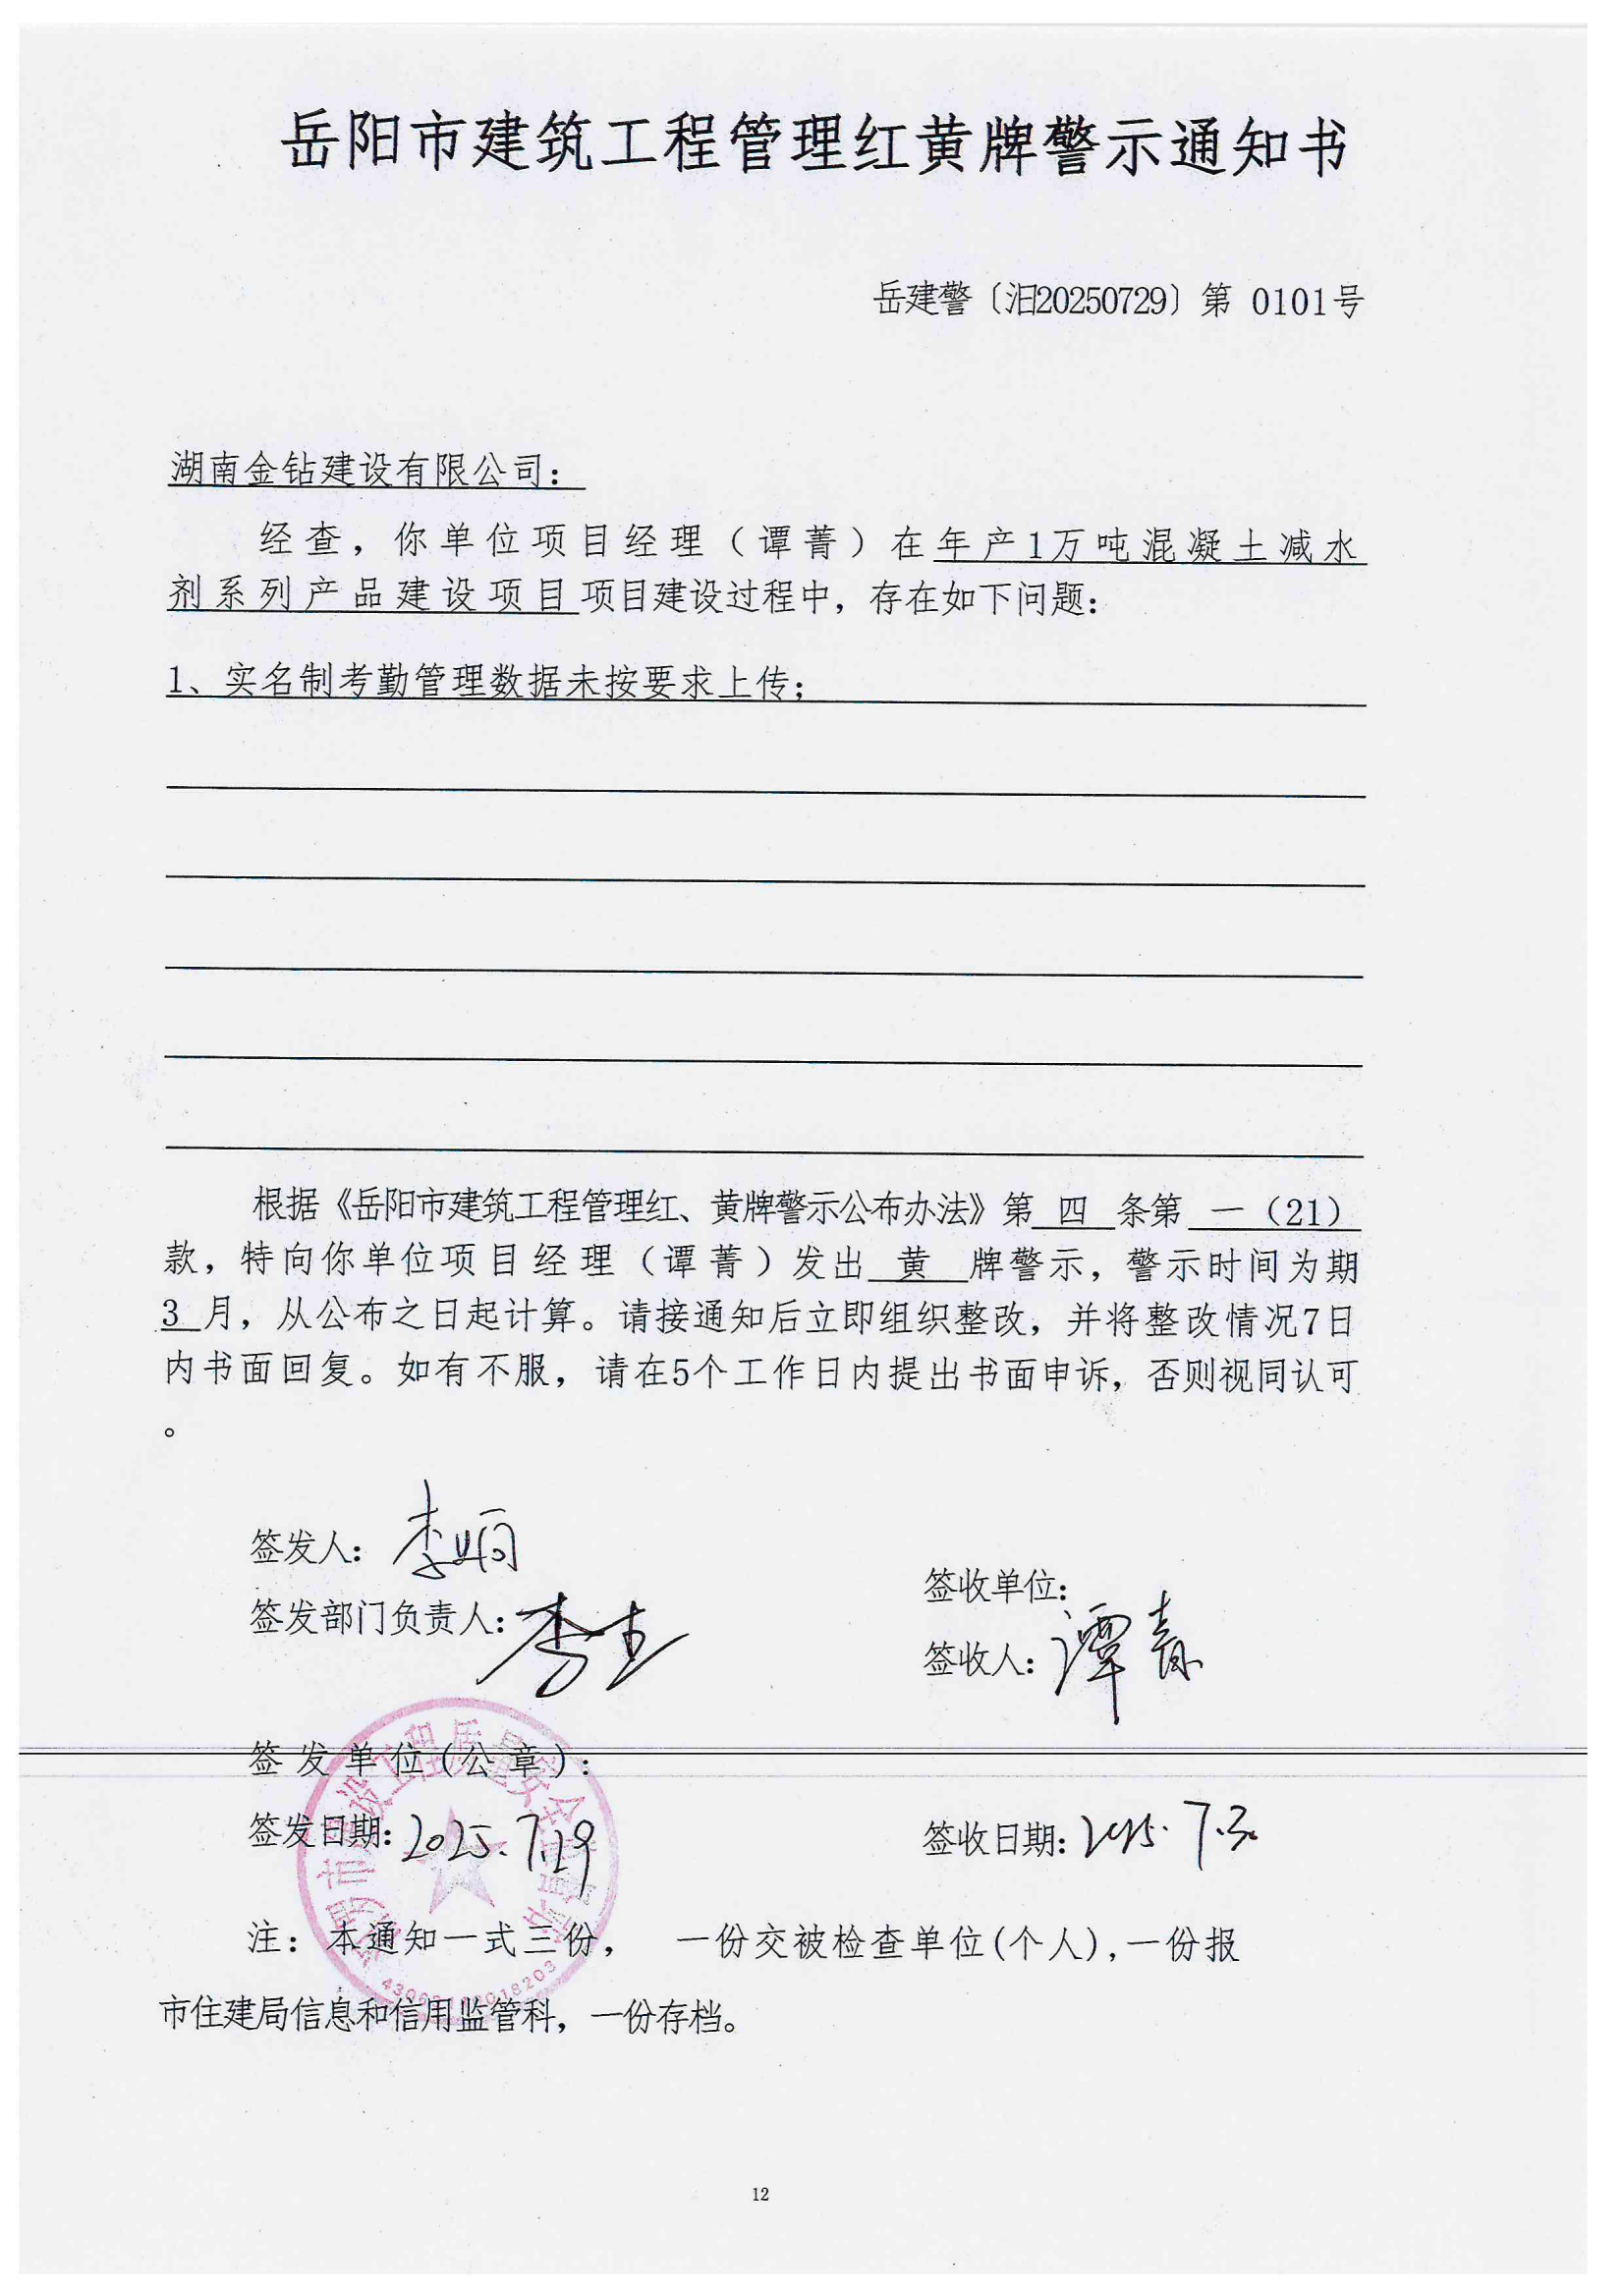 岳阳市建筑工程管理红黄牌警示通知书
岳建警〔汨20250729〕第 0101号
湖南金钻建设有限公司：
经查，你单位项目经理（谭菁）在年产1万吨混凝土减水
剂系列产品建设项目项目建设过程中，存在如下问题：
1、实名制考勤管理数据未按要求上传；
根据《岳阳市建筑工程管理红、黄牌警示公布办法》第 四 条第 一（21）
款，特向你单位项目经理（谭菁）发出 黄 牌警示，警示时间为期
3 月，从公布之日起计算。请接通知后立即组织整改，并将整改情况7日
内书面回复。如有不服，请在5个工作日内提出书面申诉，否则视同认可
。
签发人：李
签收单位：
签发部门负责人：李
签收人：谭
签发单位（公章）：
签发日期：2025.7.29
签收日期：2025.7.30
注：本通知一式三份， 一份交被检查单位(个人),一份报
市住建局信息和信用监管科，一份存档。
12